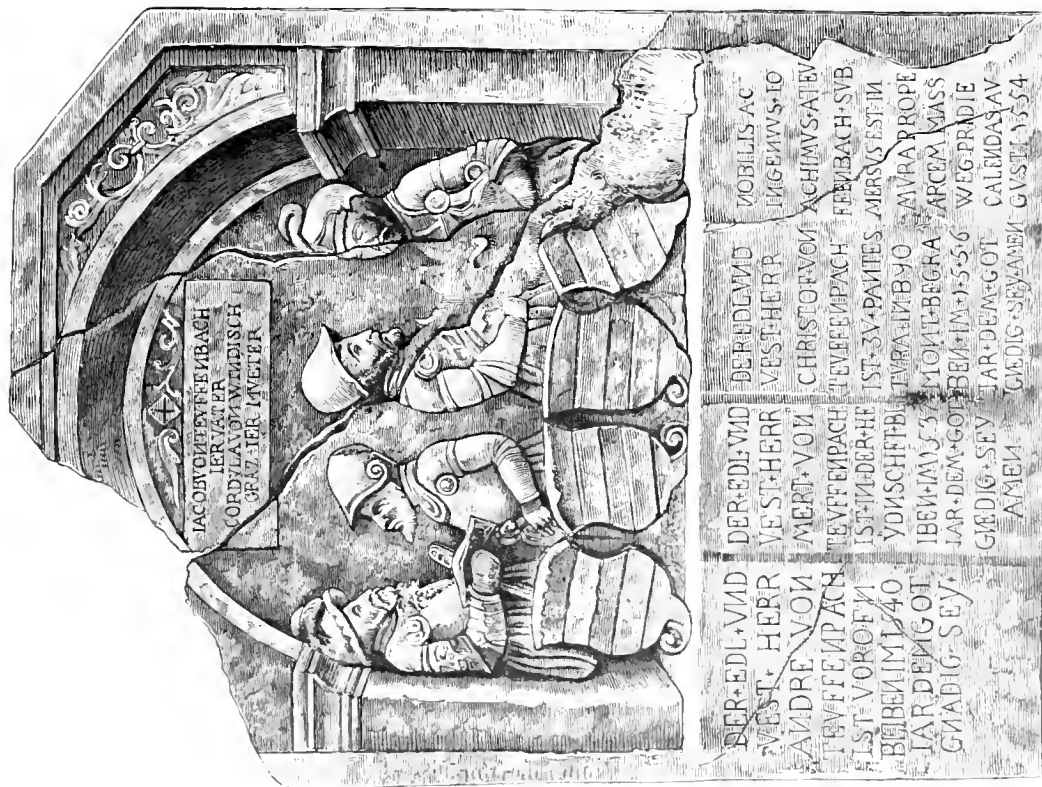 IACOBVON TEVFFENBACH
IER VATER
CORDVLA VON WINDISCH
GRAZ · IER MVETER
DER · EDL · VND
VEST · HERR
ANDRE VON
TEVFFENPACH
IST VOR OFN
BLIBEN IM 1540
IAR DEM GOT
GNADIG · SEY ·
DER · EDL · VND
VEST · HERR
MERT · VON
TEVFFENPACH
IST · IN · DER · HE
IBEN · IM · 1 · 5 · 3 · 7
IAR · DEM · GOT
GNEDIG · SEY
AMEN
DER EDL VND
VEST · HERR
CHRISTOF · VON
TEVFFENPACH
MONT · BEGRA
BEN · IM · 1 · 5 · 5 · 6
IAR · DEM · GOT
GNEDIG · SEY AMEN
NOBILIS AC
INGENVVS · IO
ACHIMVS · A TEV
FFENBACH · SVB
MERSVS EST IN
AVRA PROPE
ARCEM WASS
WEG · PRADIE
CALENDAS AV
GVSTI 1554